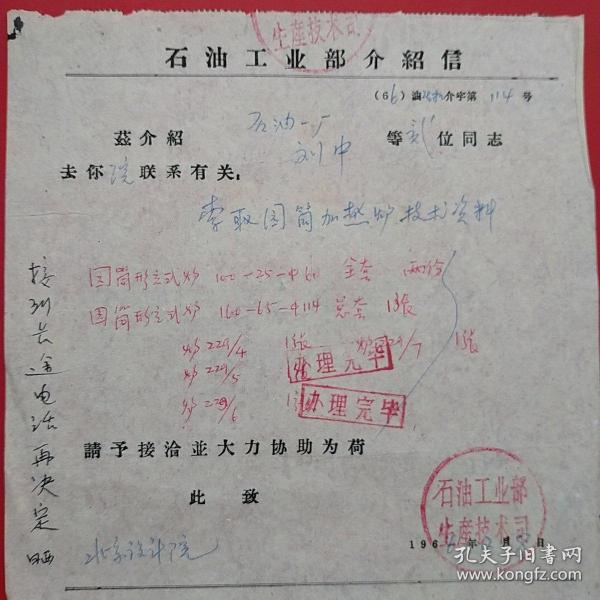 生産技术司
石油工业部介紹信
(66)油 介字第 114 号
茲介紹 石油一厂 刘中 等 贰 位同志
去你院联系有关:
索取园筒加热炉技术资料
园筒形立式炉 100-25-4 全套 两份
园筒形立式炉 160-65-4114 总套 1张
炉229/4 1张 炉229/7 1张
炉229/5
办理完毕
炉229/6
办理完毕
請予接洽並大力协助为荷
此致
北京设计院
196 年 月 日
石油工业部
生産技术司
接到长途电话再决定晒
孔夫子旧书网
www.kongfz.com